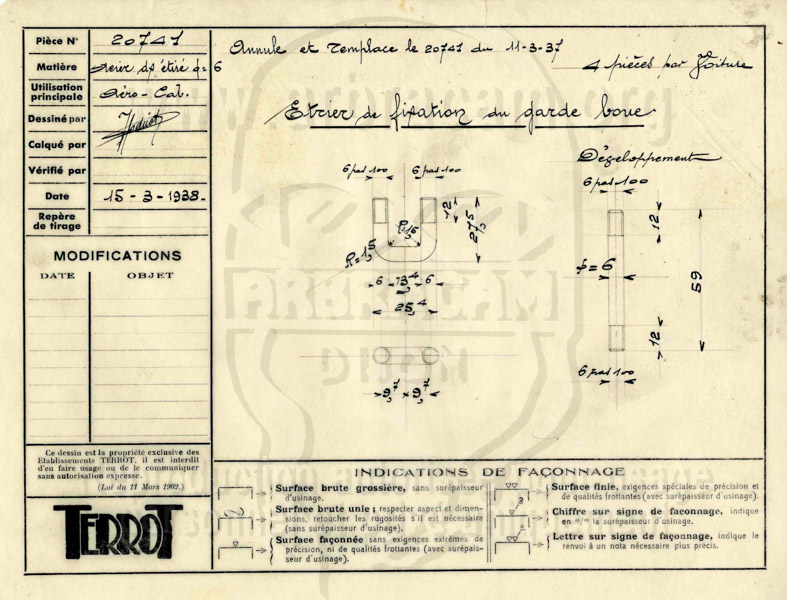 Pièce N° 20741
Matière Acier dx étiré φ= 6
Utilisation
principale Aéro-Cab.
Dessiné par
Calqué par
Vérifié par
Date 15-3-1938.
Repère
de tirage
MODIFICATIONS
DATE OBJET
Ce dessin est la propriété exclusive des
Etablissements TERROT, il est interdit
d'en faire usage ou de le communiquer
sans autorisation expresse.
(Loi du 11 Mars 1902.)
TERROT
Annule et remplace le 20741 du 11-3-37
4 pièces par Voiture
Etrier de fixation du garde boue
Dégeloppement
6 pas 100 6 pas 100
6 pas 100
12
27,5
12
R=1,5
R=1,5
φ=6
6 13,4 6
59
25,4
12
6 pas 100
9,7 9,7
ARBRACAM
DIJON
INDICATIONS DE FAÇONNAGE
Surface brute grossière, sans surépaisseur
d'usinage.
Surface brute unie; respecter aspect et dimen-
sions, retoucher les rugosités s'il est nécessaire
(sans surépaisseur d'usinage).
Surface façonnée sans exigences extrêmes de
précision, ni de qualités frottantes (avec surépais-
seur d'usinage).
Surface finie, exigences spéciales de précision et
de qualités frottantes (avec surépaisseur d'usinage).
Chiffre sur signe de faconnage, indique
en m/m la surépaisseur d'usinage.
Lettre sur signe de façonnage, indique le
renvoi à un nota nécessaire plus précis.